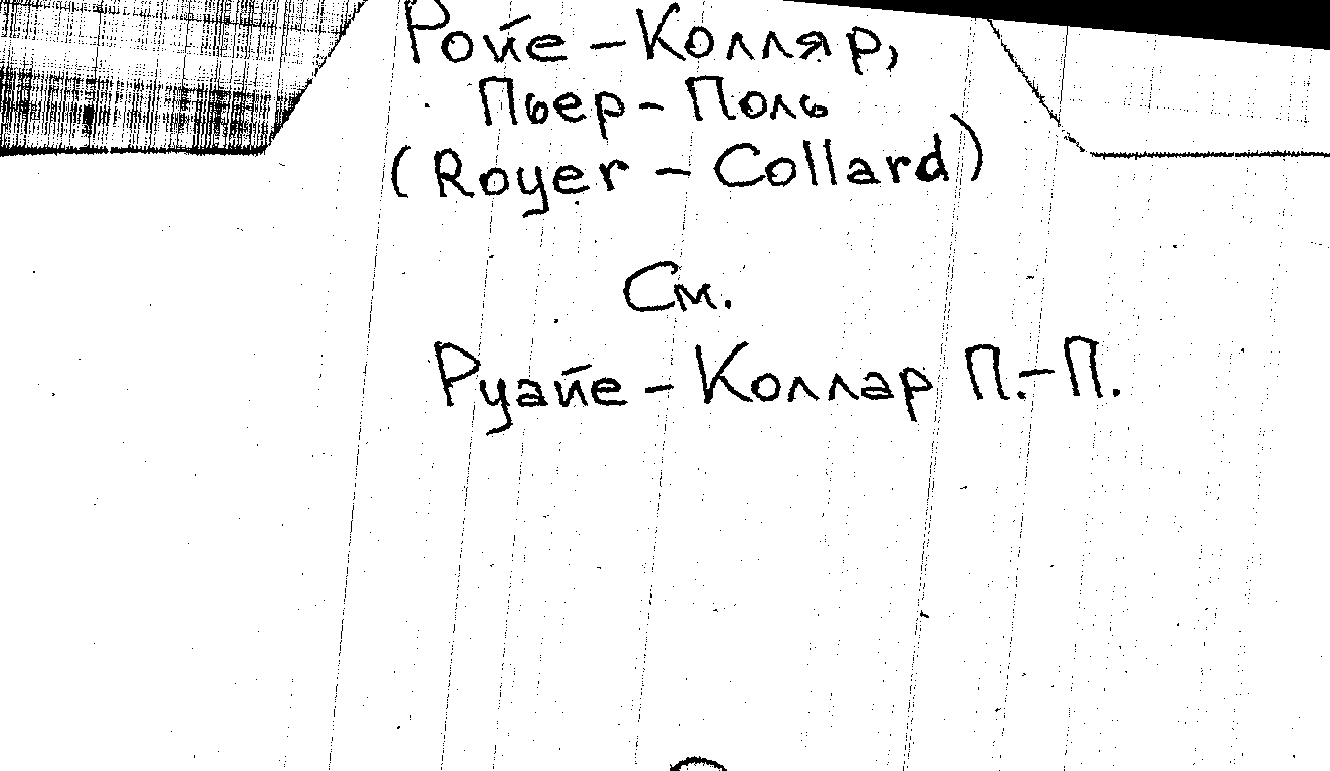 Ройе-Колляр,
Пьер-Поль
(Royer-Collard)
См.
Руайе-Коллар П.-П.